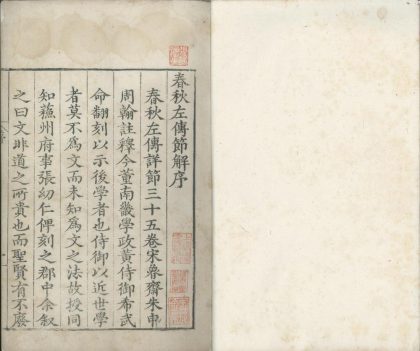 春秋左傳節解序
春秋左傳詳節三十五卷宋魯齋朱申
周翰註釋今董南畿學政黃侍御希武
命翻刻以示後學者也侍御以近世學
者莫不為文而未知為文之法故授同
知蘇州府事張幼仁俾刻之郡中余叙
之曰文非道之所貴也而聖賢有不廢